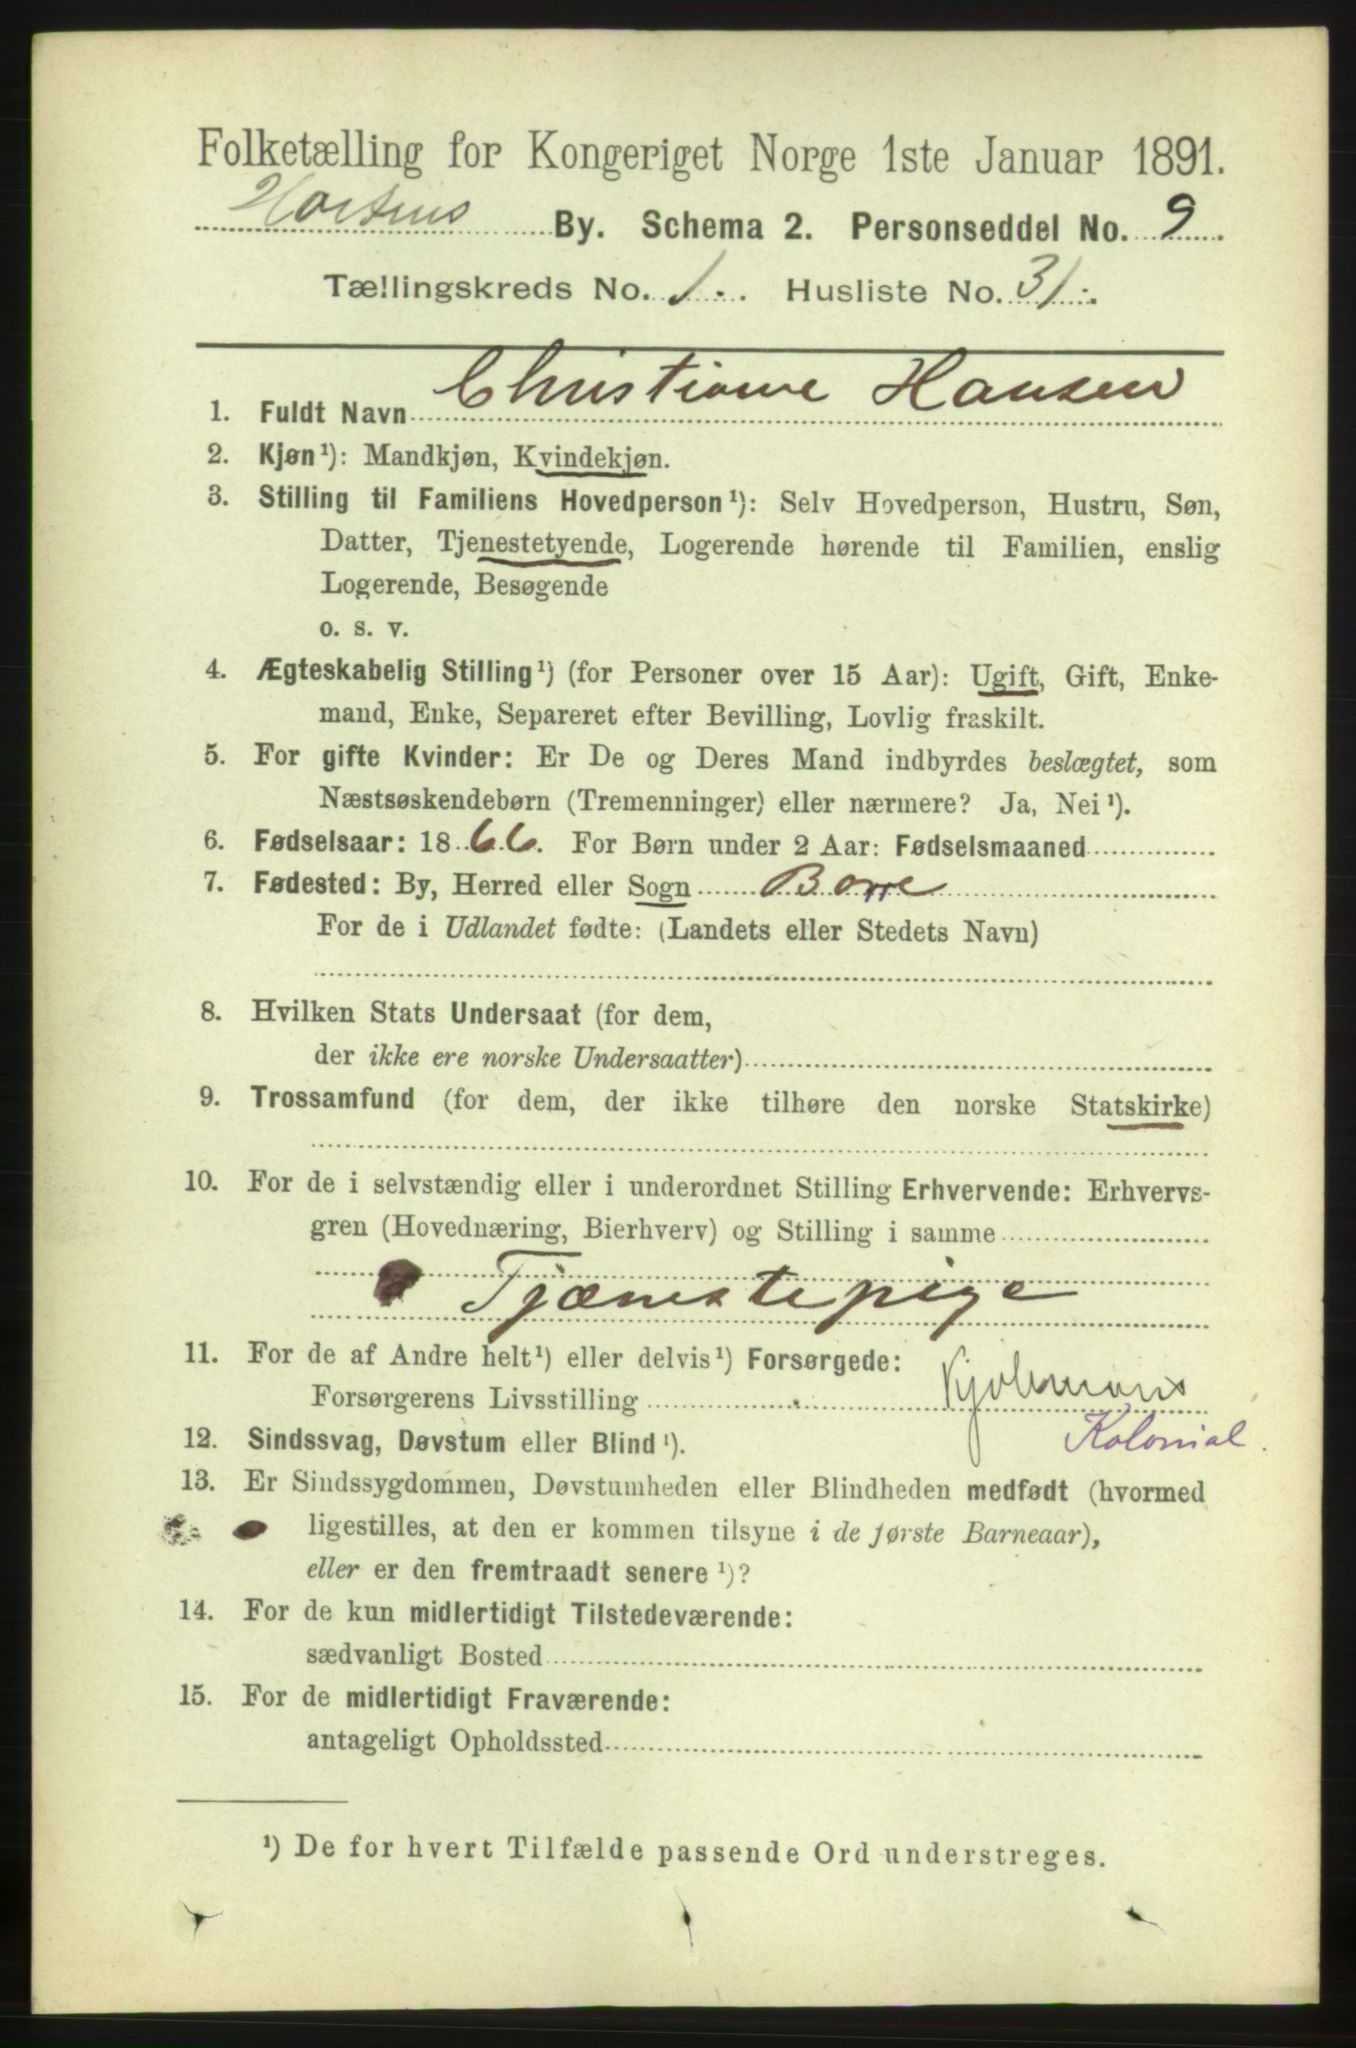 Folketælling for Kongeriget Norge 1ste Januar 1891.
Hortens By. Schema 2. Personseddel No. 9
Tællingskreds No. 1. Husliste No. 31.
1. Fuldt Navn Christiane Hansen
2. Kjøn¹): Mandkjøn, Kvindekjøn.
3. Stilling til Familiens Hovedperson¹): Selv Hovedperson, Hustru, Søn,
Datter, Tjenestetyende, Logerende hørende til Familien, enslig
Logerende, Besøgende
o. s. v.
4. Ægteskabelig Stilling¹) (for Personer over 15 Aar): Ugift, Gift, Enke-
mand, Enke, Separeret efter Bevilling, Lovlig fraskilt.
5. For gifte Kvinder: Er De og Deres Mand indbyrdes beslægtet, som
Næstsøskendebørn (Tremenninger) eller nærmere? Ja, Nei¹).
6. Fødselsaar: 1866. For Børn under 2 Aar: Fødselsmaaned
7. Fødested: By, Herred eller Sogn Borre
For de i Udlandet fødte: (Landets eller Stedets Navn)
8. Hvilken Stats Undersaat (for dem,
der ikke ere norske Undersaatter)
9. Trossamfund (for dem, der ikke tilhøre den norske Statskirke)
10. For de i selvstændig eller i underordnet Stilling Erhvervende: Erhvervs-
gren (Hovednæring, Bierhverv) og Stilling i samme
Tjænestepige
11. For de af Andre helt¹) eller delvis¹) Forsørgede:
Forsørgerens Livsstilling Kjøbmands
Kolonial.
12. Sindssvag, Døvstum eller Blind¹).
13. Er Sindssygdommen, Døvstumheden eller Blindheden medfødt (hvormed
ligestilles, at den er kommen tilsyne i de første Barneaar),
eller er den fremtraadt senere¹)?
14. For de kun midlertidigt Tilstedeværende:
sædvanligt Bosted
15. For de midlertidigt Fraværende:
antageligt Opholdssted
¹) De for hvert Tilfælde passende Ord understreges.